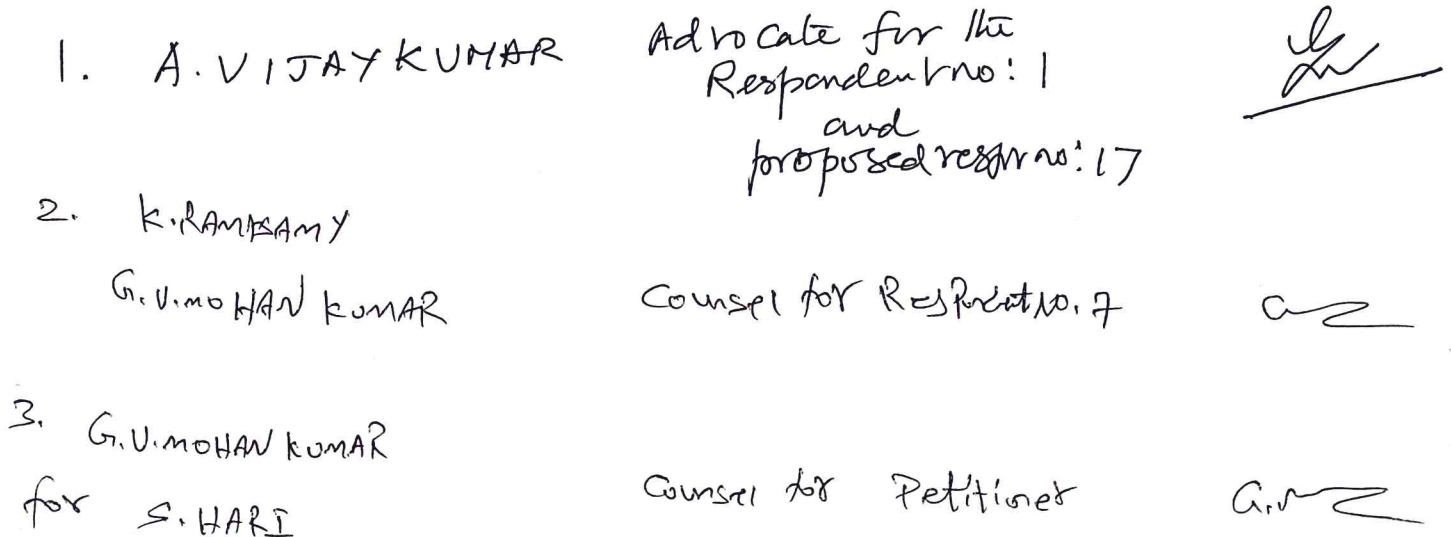 1. A. VIJAYKUMAR Advocate for the
Respondent no: 1
and
proposed respr no: 17
2. K. RAMASAMY
G. V. MOHAN KUMAR Counsel for Respondent No. 7
3. G. V. MOHAN KUMAR
for S. HARI Counsel for Petitioner